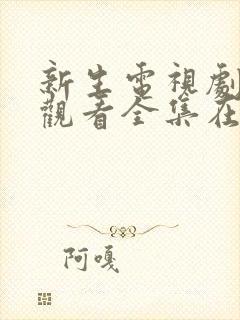 新生電視劇
觀看全集在
阿嘎